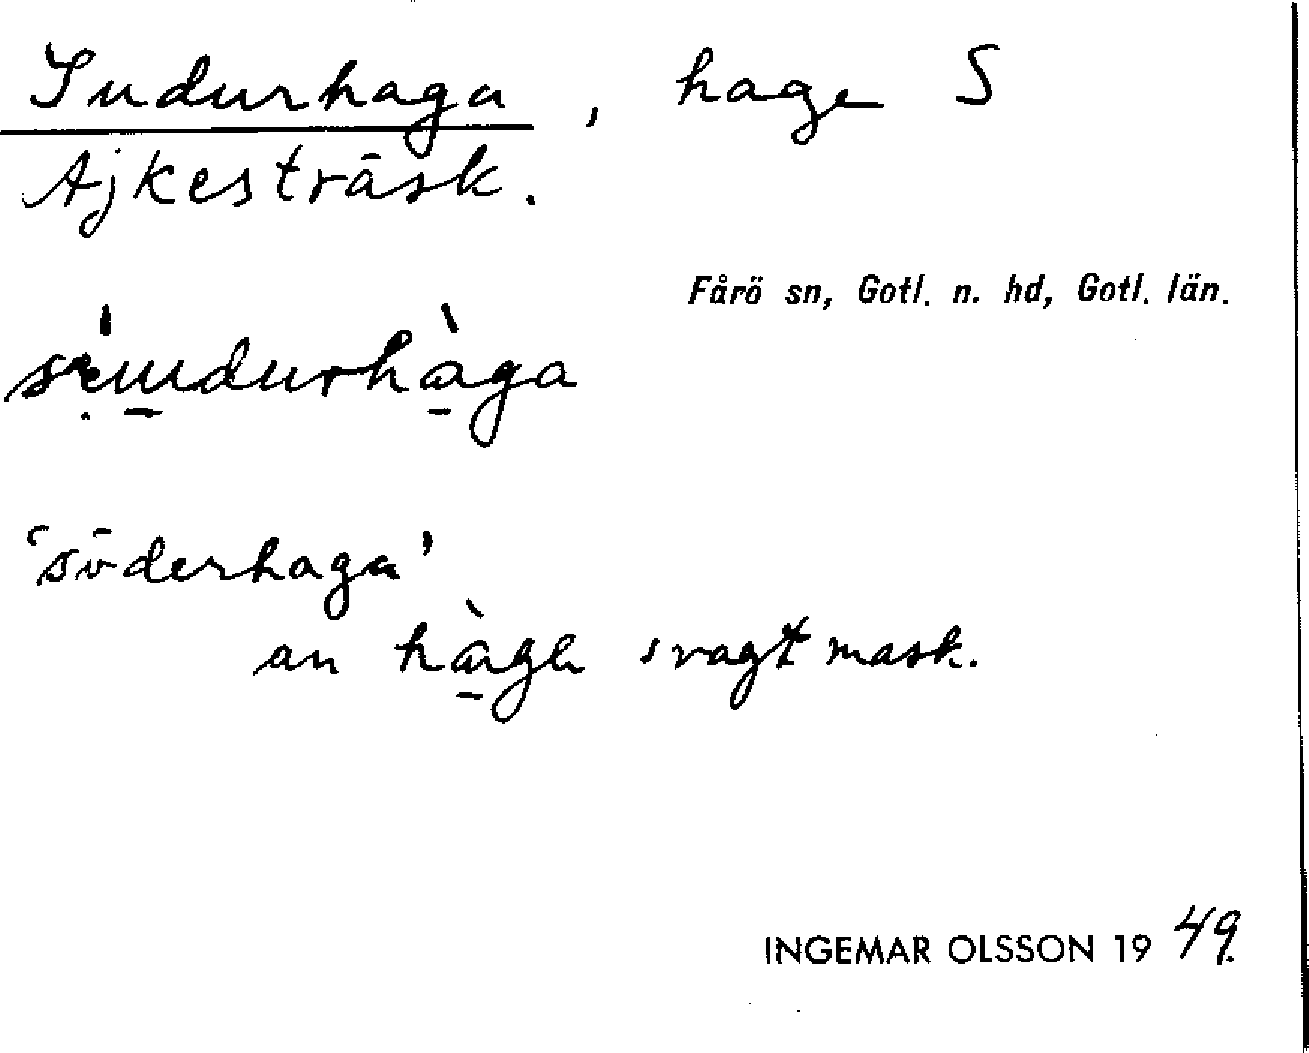 Sudurhaga, hage S
Ajkesträsk.
Fårö sn, Gotl. n. hd, Gotl. län.
'söderhaga'
an hàga svagt mask.
INGEMAR OLSSON 19 49.